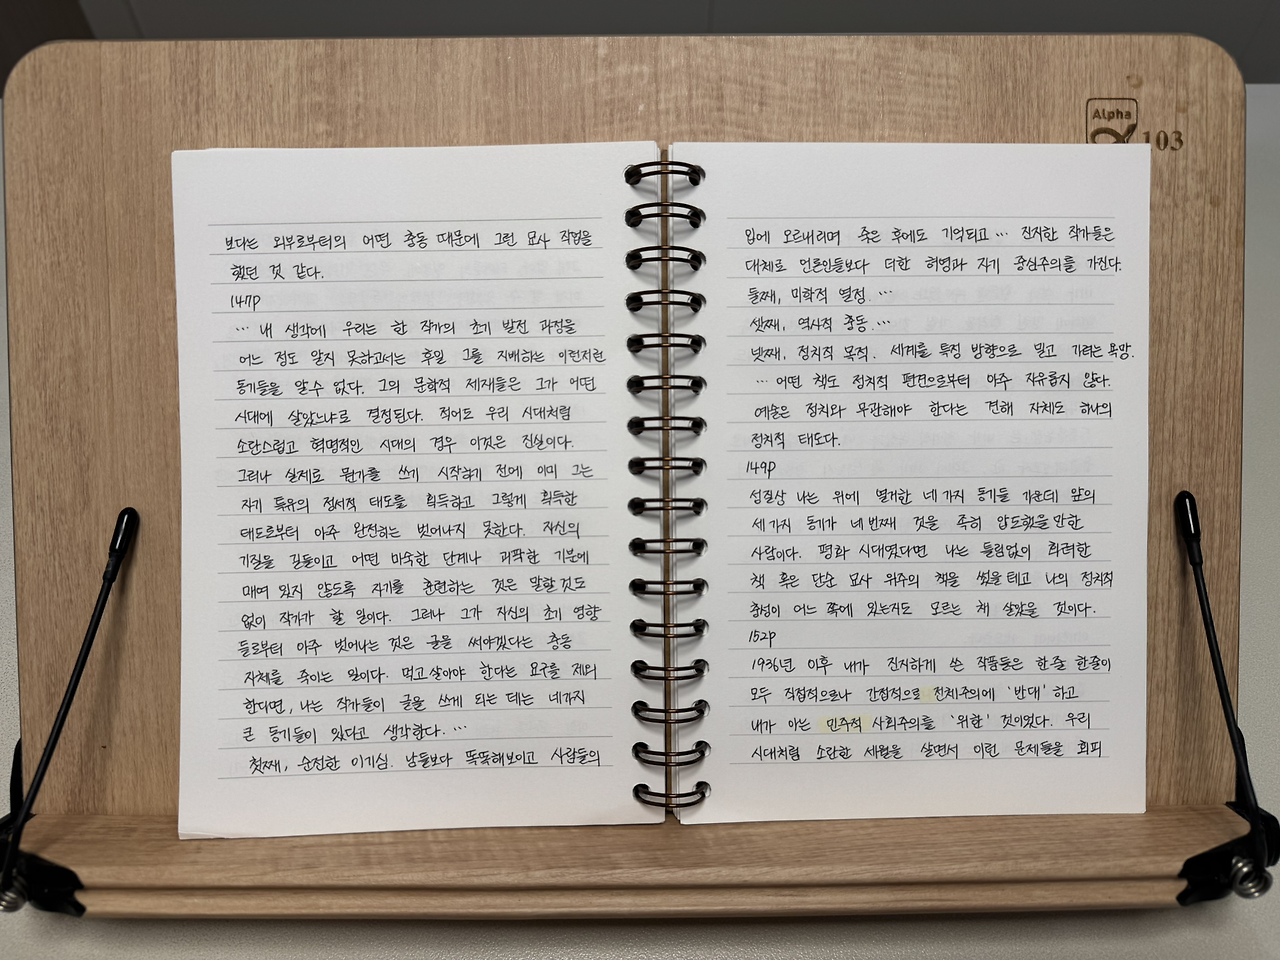 Alpha
103
보다는 외부로부터의 어떤 충동 때문에 그런 묘사 작업을
했던 것 같다.
147p
… 내 생각에 우리는 한 작가의 초기 발전 과정을
어느 정도 알지 못하고서는 후일 그를 지배하는 이런저런
동기들을 알 수 없다. 그의 문학적 제재들은 그가 어떤
시대에 살았느냐로 결정된다. 적어도 우리 시대처럼
소란스럽고 혁명적인 시대의 경우 이것은 진실이다.
그러나 실제로 뭔가를 쓰기 시작하기 전에 이미 그는
자기 특유의 정서적 태도를 획득하고 그렇게 획득한
태도로부터 아주 완전하는 벗어나지 못한다. 자신의
기질을 길들이고 어떤 미숙한 단계나 괴팍한 기분에
매여 있지 않도록 자기를 훈련하는 것은 말할 것도
없이 작가가 할 일이다. 그러나 그가 자신의 초기 영향
들로부터 아주 벗어나는 것은 글을 써야겠다는 충동
자체를 죽이는 일이다. 먹고 살아야 한다는 요구를 제외
한다면, 나는 작가들이 글을 쓰게 되는 데는 네가지
큰 동기들이 있다고 생각한다. …
첫째, 순전한 이기심. 남들보다 똑똑해보이고 사람들의
입에 오르내리며 죽은 후에도 기억되고 … 진지한 작가들은
대체로 언론인들보다 더한 허영과 자기 중심주의를 가진다.
둘째, 미학적 열정 …
셋째, 역사적 충동. …
넷째, 정치적 목적. 세계를 특정 방향으로 밀고 가려는 욕망.
… 어떤 책도 정치적 편견으로부터 아주 자유롭지 않다.
예술은 정치와 무관해야 한다는 견해 자체도 하나의
정치적 태도다.
149p
성질상 나는 위에 열거한 네 가지 동기들 가운데 앞의
세 가지 동기가 네번째 것을 족히 압도했을 만한
사람이다. 평화 시대였다면 나는 틀림없이 화려한
책 혹은 단순 묘사 위주의 책을 썼을 테고 나의 정치적
충성이 어느 쪽에 있는지도 모르는 채 살았을 것이다.
152p
1936년 이후 내가 진지하게 쓴 작품들은 한줄 한줄이
모두 직접적으로나 간접적으로 전체주의에 '반대'하고
내가 아는 민주적 사회주의를 '위한' 것이었다. 우리
시대처럼 소란한 세월을 살면서 이런 문제들을 회피